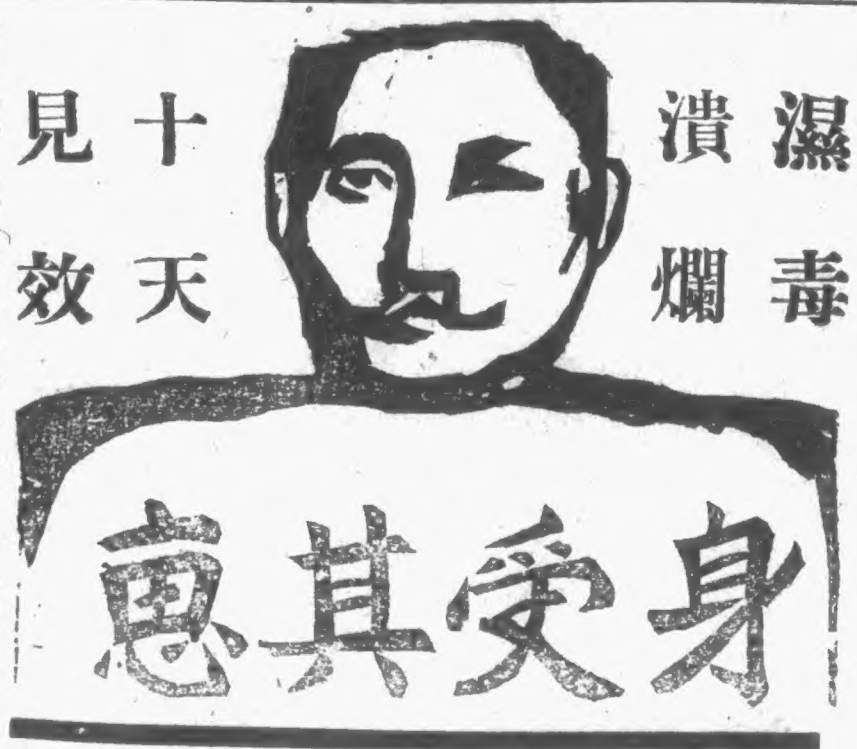 濕毒
潰爛
十天
見效
身受其恵